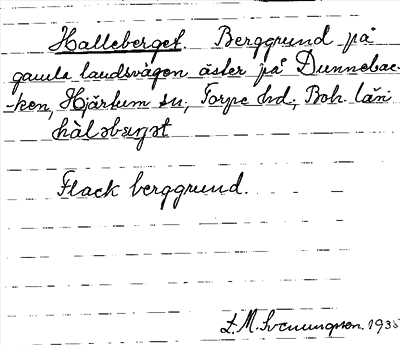 Halleberget. Berggrund på
gamla landsvägen öster på Dunnebac-
-ken, Hjärtum sn, Torpe hd, Boh. län
hàləbærjət
Flack berggrund.
1935